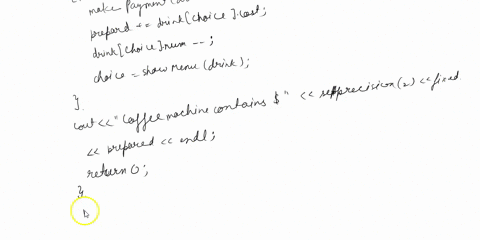 make Payment (
prepared += drink[choice].cost;
drink[choice].num --;
choice = showMenu (drink);
}
cout << "Coffee machine contains $" << setprecision(2) << fixed
<< prepared << endl;
return 0;
}